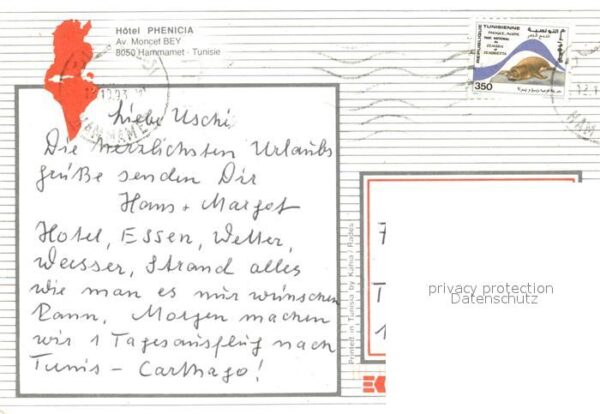 Hôtel PHENICIA
Av. Moncef BEY
8050 Hammamet - Tunisie
REPUBLIQUE TUNISIENNE
350
liebe Uschi,
Die herzlichsten Urlaubs
grüße senden Dir
Hans + Margot
Hotel, Essen, Wetter,
Wasser, Strand alles
wie man es nur wünschen
kann. Morgen machen
wir 1 Tagesausflug nach
Tunis - Carthago!
Printed in Tunisia by Kahia / Rades
privacy protection
Datenschutz